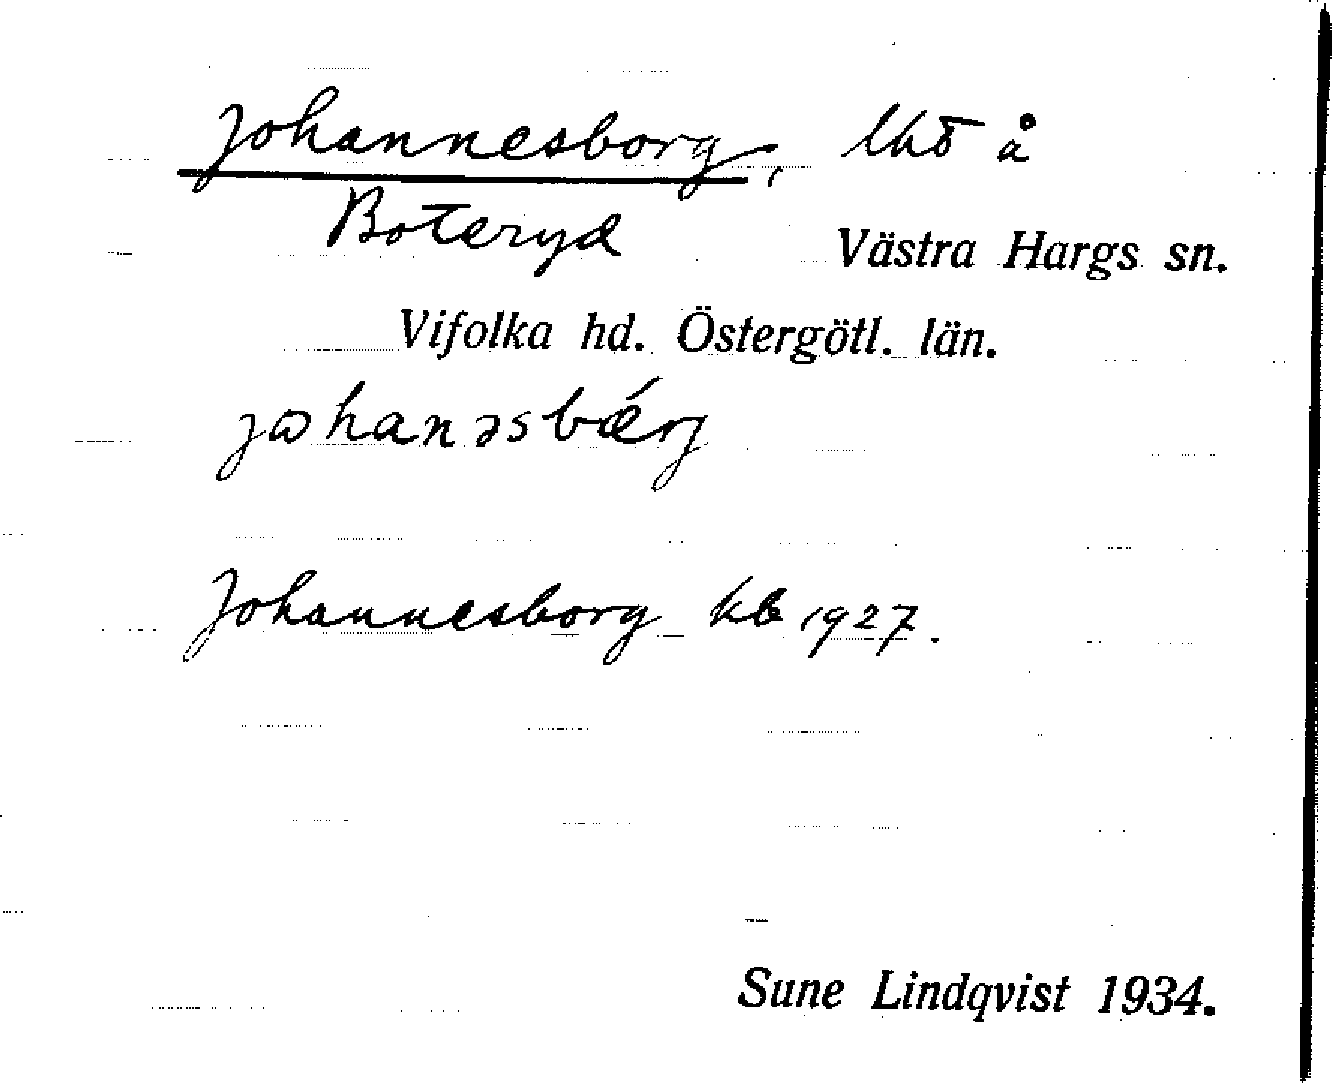 Johannesborg, lht å
Boteryd
Västra Hargs sn.
Vifolka hd. Östergötl. län.
johanəsbǽrj
Johannesborg kb 1927.
Sune Lindqvist 1934.